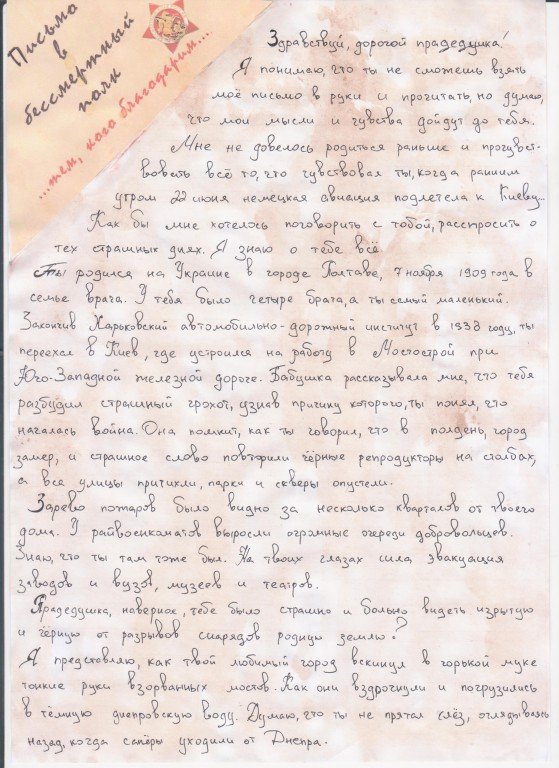 Письмо
в
бессмертный
полк
...тем, кого благодарим...
Здравствуй, дорогой прадедушка!
Я понимаю, что ты не сможешь взять
моё письмо в руки и прочитать, но думаю,
что мои мысли и чувства дойдут до тебя.
Мне не довелось родиться раньше и прочувст-
вовать всё то, что чувствовал ты, когда ранним
утром 22 июня немецкая авиация подлетела к Киеву...
Как бы мне хотелось поговорить с тобой, расспросить о
тех страшных днях. Я знаю о тебе всё.
Ты родился на Украине в городе Полтаве, 7 ноября 1909 года в
семье врача. У тебя было четыре брата, а ты самый маленький.
Закончив Харьковский автомобильно-дорожный институт в 1938 году, ты
переехал в Киев, где устроился на работу в Мостострой при
Юго-Западной железной дороге. Бабушка рассказывала мне, что тебя
разбудил страшный грохот, узнав причину которого, ты понял, что
началась война. Она помнит, как ты говорил, что в полдень, город
замер, и страшное слово повторили чёрные репродукторы на столбах,
а все улицы притихли, парки и скверы опустели.
Зарево пожаров было видно за несколько кварталов от твоего
дома. У райвоенкоматов выросли огромные очереди добровольцев.
Знаю, что ты там тоже был. На твоих глазах шла эвакуация
заводов и вузов, музеев и театров.
Прадедушка, наверное, тебе было страшно и больно видеть изрытую
и чёрную от разрывов снарядов родную землю?
Я представляю, как твой любимый город вскинул в горькой муке
тонкие руки взорванных мостов. Как они вздрогнули и погрузились
в тёмную днепровскую воду. Думаю, что ты не прятал слёз, оглядываясь
назад, когда сапёры уходили от Днепра.